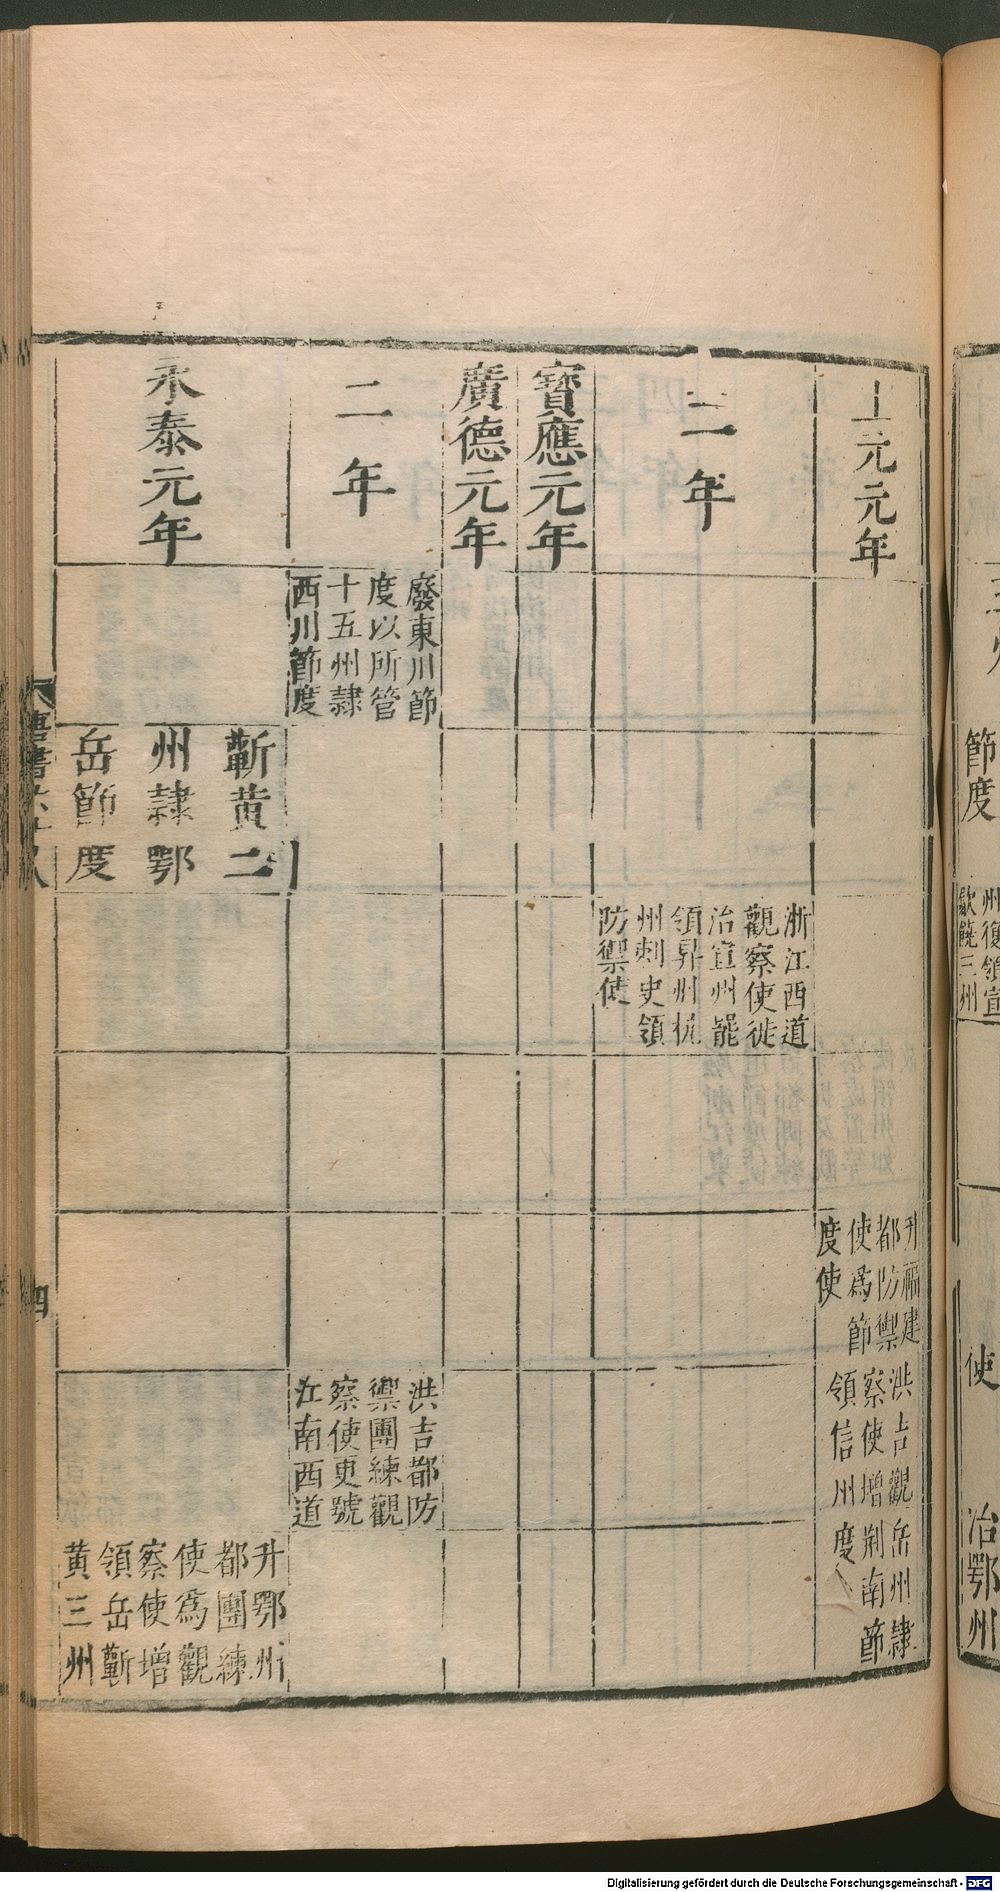 上元元年
升福建
都防禦
使為節
度使
洪吉觀
察使增
領信州
岳州隸
荆南節
度
二年
浙江西道
觀察使徙
治宣州罷
領昇州杭
州刺史領
防禦使
寶應元年
廣德元年
二年
廢東川節
度以所管
十五州隸
西川節度
洪吉都防
禦團練觀
察使更號
江南西道
永泰元年
蘄黄二
州隸鄂
岳節度
升鄂州
都團練
使爲觀
察使增
領岳蘄
黄三州
四
節度
州復領宣
歙饒三州
使
治鄂州
Digitalisierung gefördert durch die Deutsche Forschungsgemeinschaft - DFG